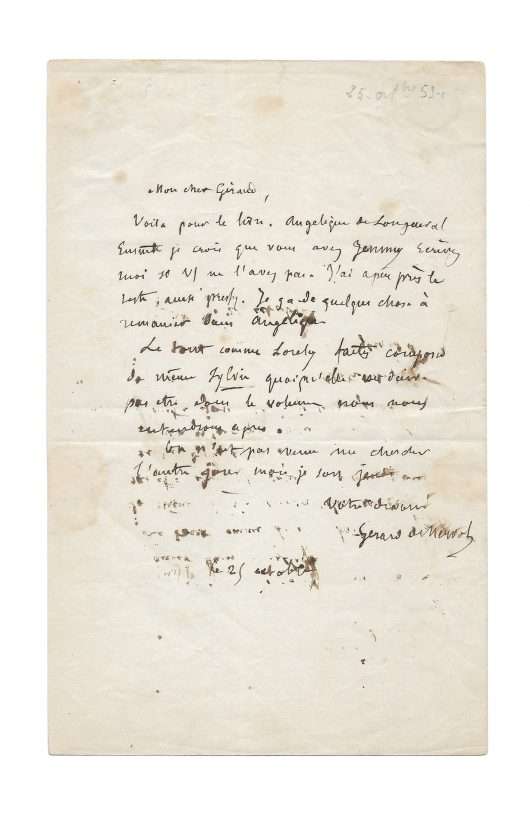 25 octbre 53
Mon cher Giraud,
Voila pour le titre. Angelique de Longueval
Ensuite je crois que vous avez Jemmy Ecrivez
moi si vs ne l'avez pas. J'ai à peu près le
reste, aussi pressez. Je garde quelque chose à
remanier dans Angelique
Le tout comme Lorely faites composer
de même Sylvie quoiqu'elle ne doive
pas être dans le volume nous nous
entendrons après.
n'est pas venu me chercher
l'autre jour mais je sors
Votre dévoué
Gérard de Nerval
le 25 octobre